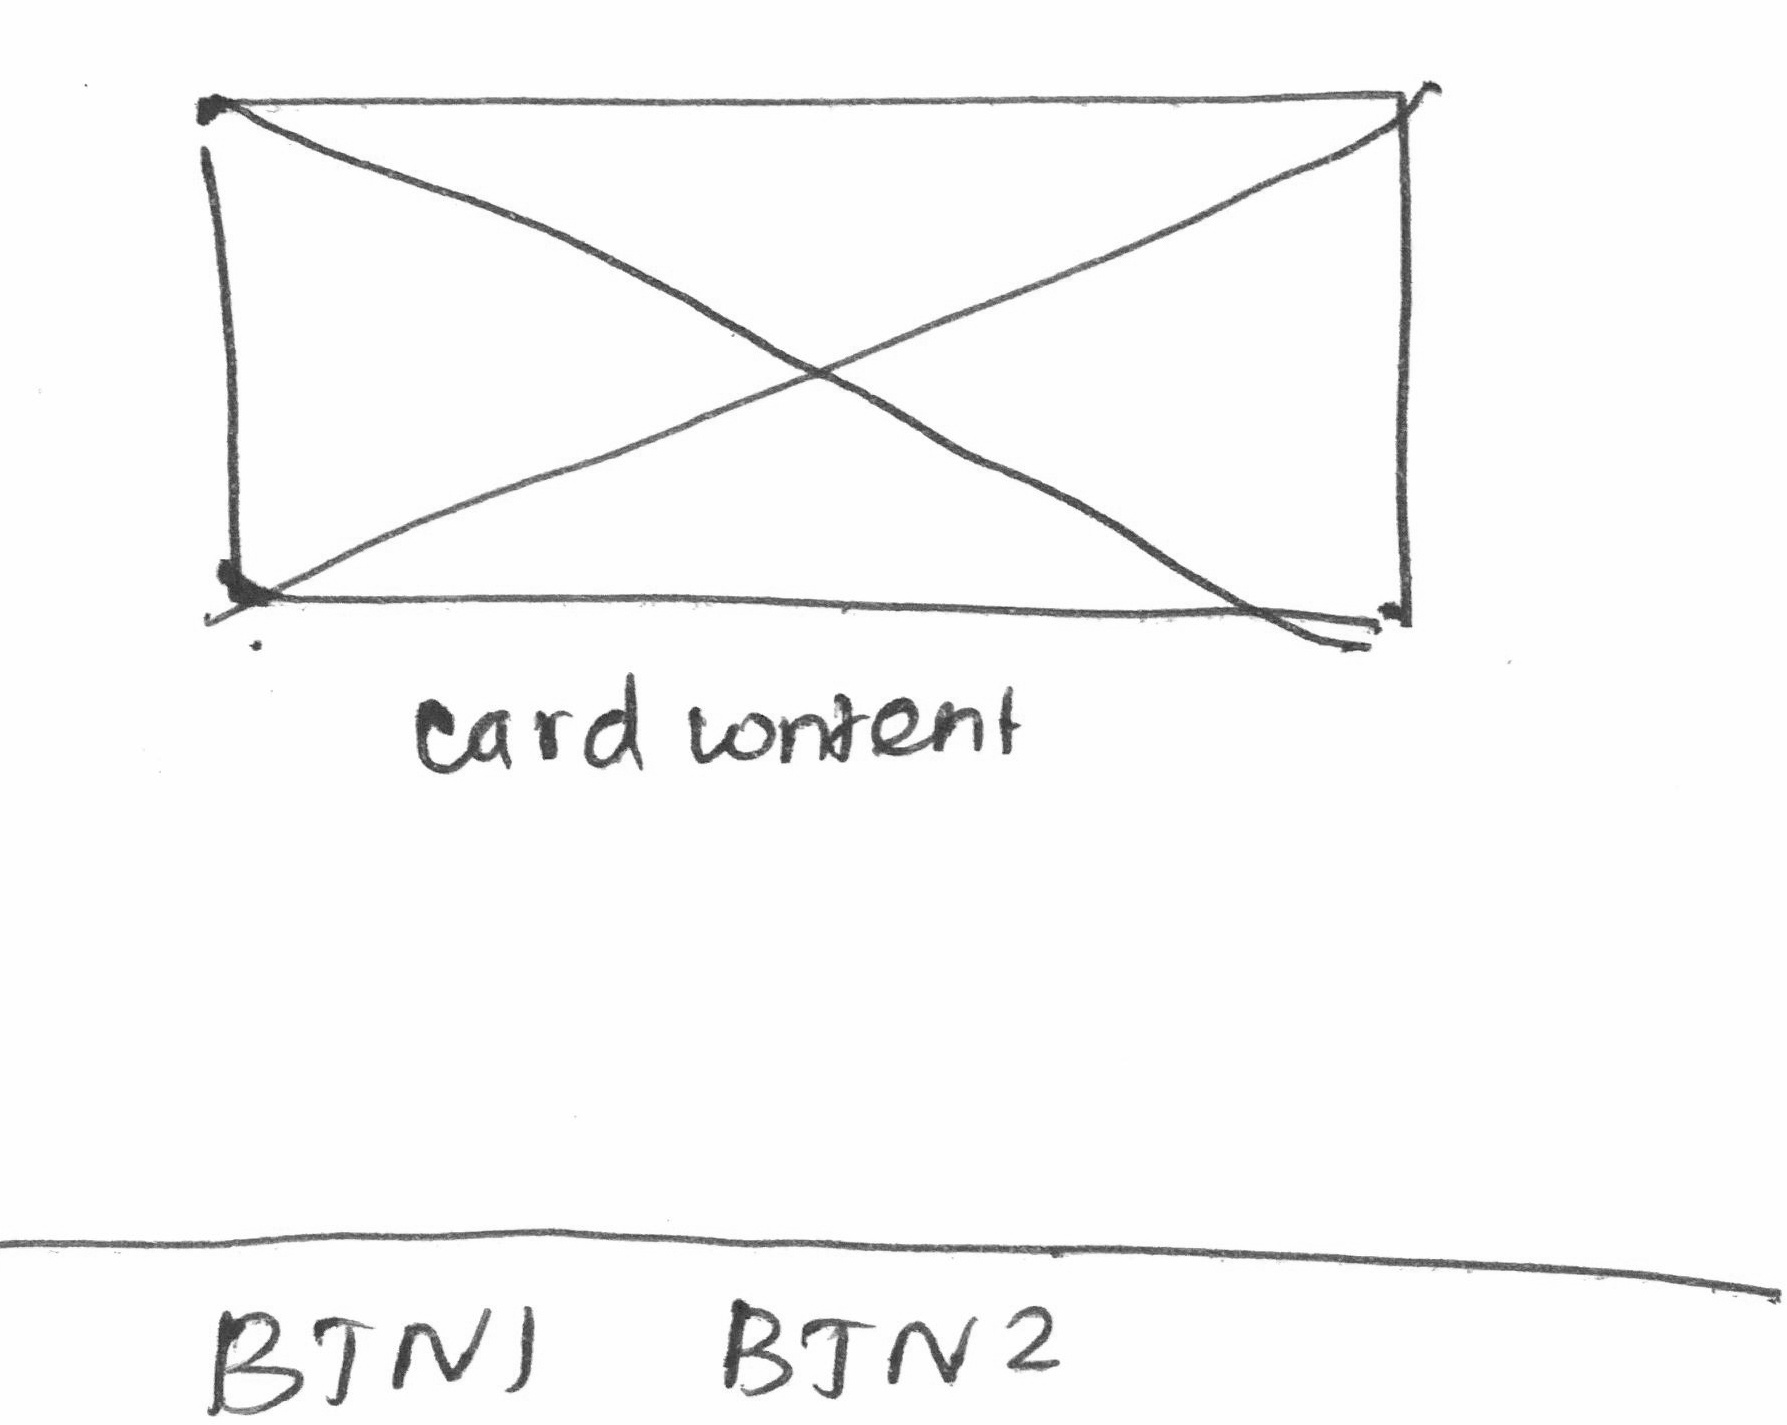 card content
BTN1 BTN2